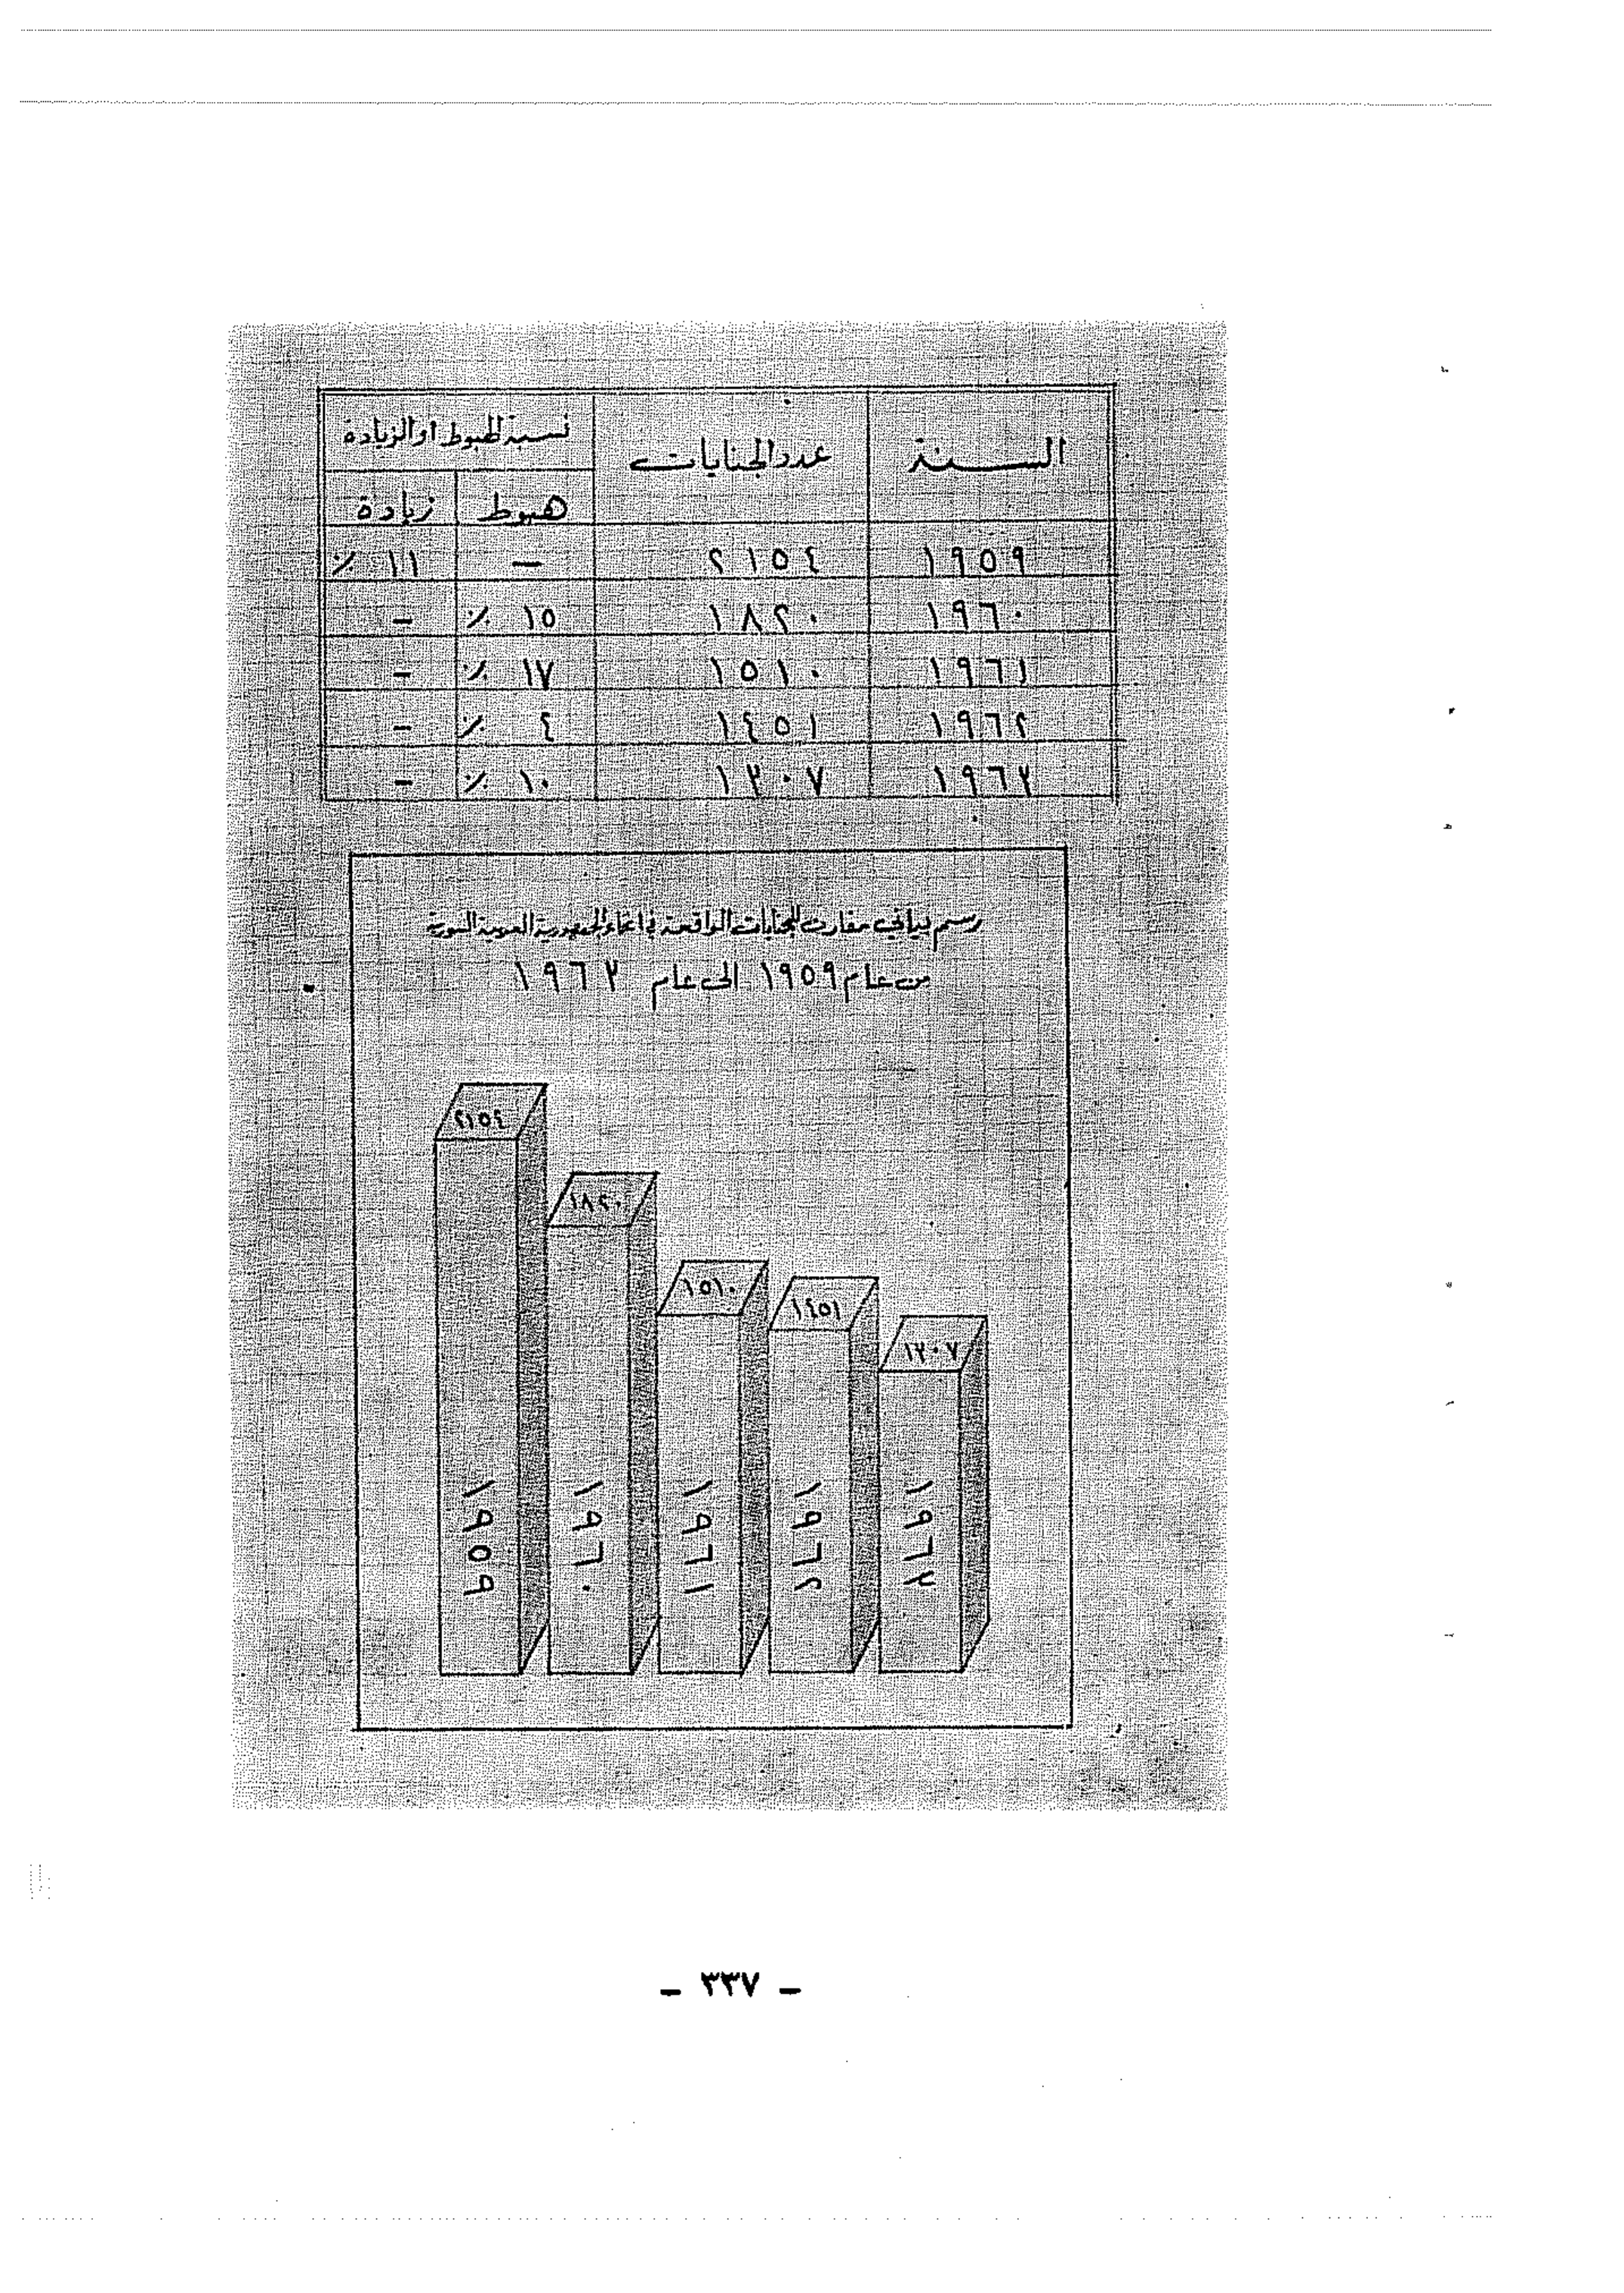 السنة عدد الجنايات نسبة الهبوط او الزيادة
هبوط زيادة
١٩٥٩ ٢١٥٤ — ١١ ٪
١٩٦٠ ١٨٢٠ ١٥ ٪ —
١٩٦١ ١٥١٠ ١٧ ٪ —
١٩٦٢ ١٤٥١ ٤ ٪ —
١٩٦٣ ١٣٠٧ ١٠ ٪ —
رسم بياني مقارن للجنايات الواقعة في انحاء الجمهورية العربية السورية
من عام ١٩٥٩ الى عام ١٩٦٣
٢١٥٤
١٨٢٠
١٥١٠
١٤٥١
١٣٠٧
١٩٥٩
١٩٦٠
١٩٦١
١٩٦٢
١٩٦٣
— ٣٣٧ —